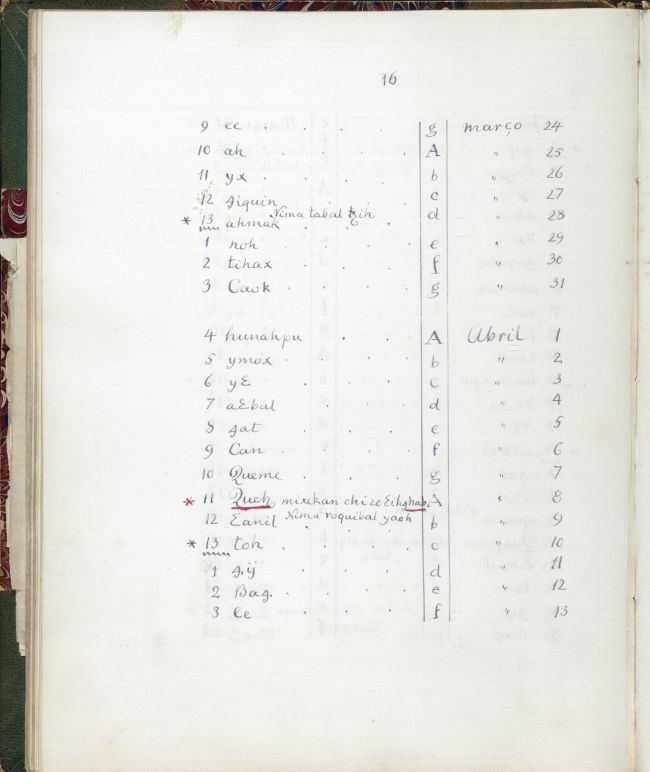 16
9 ee . . . . g março 24
10 ah . . . . A " 25
11 yx . . . . b " 26
12 ziquin . . . c " 27
Nima tabal ꜯih
* 13 ahmak . . . d " 28
1 noh . . . . e " 29
2 tihax . . . . f " 30
3 Caok . . . . g " 31
4 hunahpu . . . A Abril 1
5 ymox . . . . b " 2
6 yE . . . . c " 3
7 aEbal . . . . d " 4
8 jat . . . . e " 5
9 Can . . . . f " 6
10 Queme . . . . g " 7
* 11 Queh, mixekan chi 20 Eihghab. A " 8
12 Eanil Nima roquibal yaoh b " 9
* 13 toh . . . . c " 10
1 jij . . . . d " 11
2 Baq. . . . e " 12
3 Ee . . . . f " 13